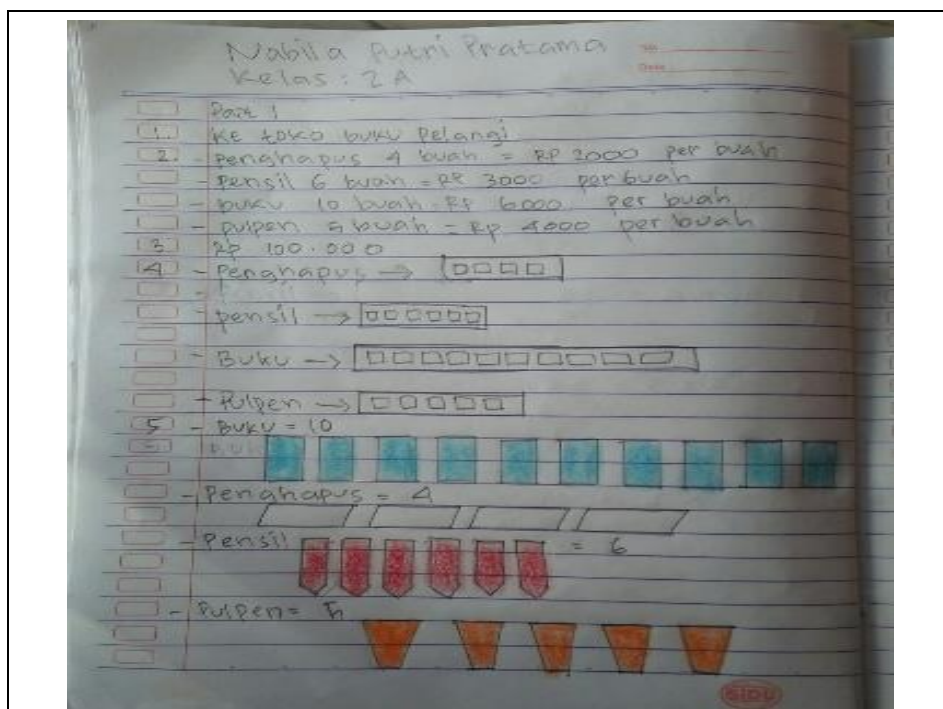 Nabila Putri Pratama
Kelas : 2 A
No.
Date
Part 1
1. Ke toko buku Pelangi
2. - Penghapus 4 buah = RP 2000 per buah
- Pensil 6 buah = RP 3000 per buah
- buku 10 buah = RP 6000 per buah
- pulpen 5 buah = Rp 4000 per buah
3 Rp 100.000
4 - Penghapus →
- pensil →
- Buku →
- Pulpen →
5 - Buku = 10
- Penghapus = 4
- Pensil = 6
- Pulpen = 5
SIDU